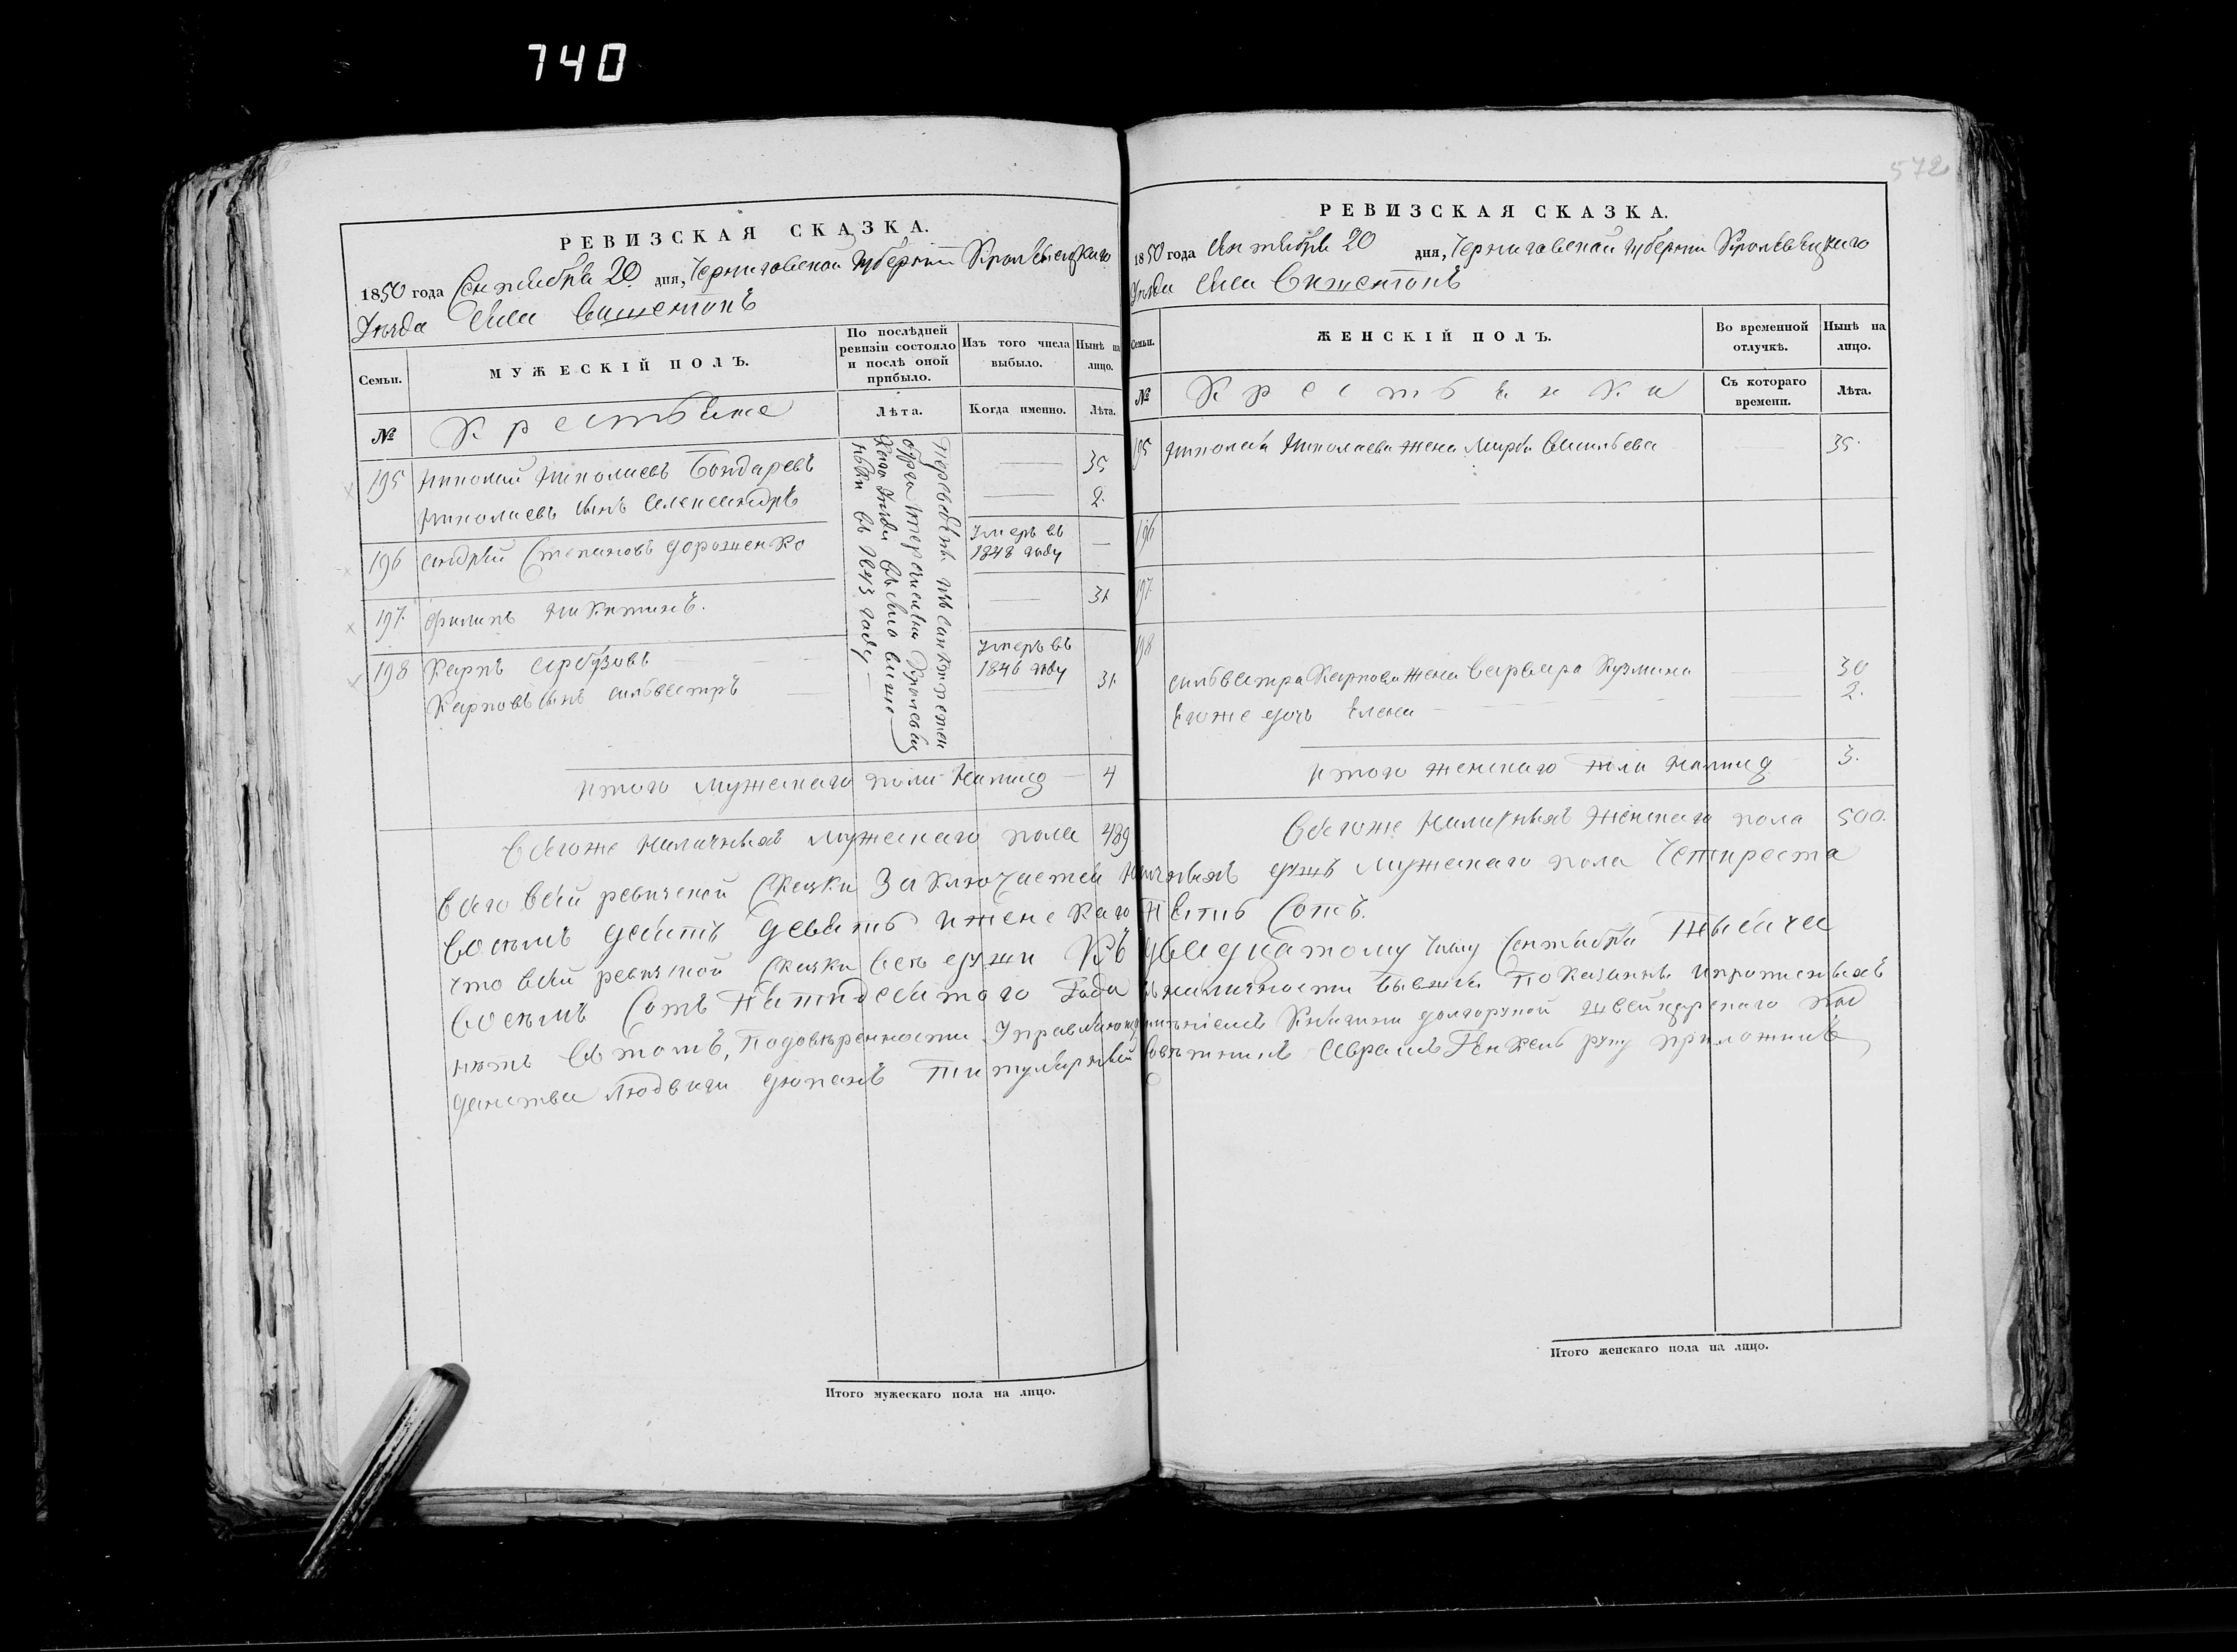 740
572
РЕВИЗСКАЯ СКАЗКА.
1850 года Сентября 20 дня, Черниговской губернии Кролевецкаго
Уезда Села
МУЖЕСКІЙ ПОЛЪ.
По послѣдней ревизіи состояло и послѣ оной прибыло.
Изъ того числа выбыло.
Нынѣ на лицо.
Семьи.
№
Крестьяне
Лѣта.
Когда именно.
Лѣта.
195 Николай Николаевъ Бондаревъ 35
Николаевъ сынъ Александръ 2.
196 Андрей Степановъ Дорошенко Умеръ въ 1848 году —
197. Филипъ Никитинъ. 31
198 Карпъ Арбузовъ Умеръ въ 1846 году
Карповъ сынъ Сильвестръ 31
Переведены
Уезда въ село
въ 1843 году
Итого мужескаго пола налицо 4
Всегоже наличныхъ мужескаго пола 489
РЕВИЗСКАЯ СКАЗКА.
1850 года Сентября 20 дня, Черниговской губернии Кролевецкаго
Уезда Села
Семьи.
ЖЕНСКІЙ ПОЛЪ.
Во временной отлучкѣ.
Нынѣ на лицо.
№
Крестьянки
Съ котораго времени.
Лѣта.
195 Николая Николаева жена Марфа Васильева 35.
196
197
198
Сильвестра Карпова жена Варвара Кузмина 30
Егоже дочь Елена 2.
Итого женскаго пола налицо 3.
Всегоже наличныхъ женскаго пола 500.
Всего всей ревизской сказки заключается наличныхъ душъ мужескаго пола четыреста
восемъ десятъ девять и женскаго пять сотъ.
Что всей ревизской сказки все души къ двадцатому числу Сентября тысяча
восемъ сотъ пятидесятаго года в наличности бывшие показаны и прописныхъ
нѣтъ въ томъ, по доверенности имѣніемъ Княгини Долгорукой Швейцарскаго под
данства Людвига Титулярный Советникъ руку приложилъ
Итого мужескаго пола на лицо.
Итого женскаго пола на лицо.